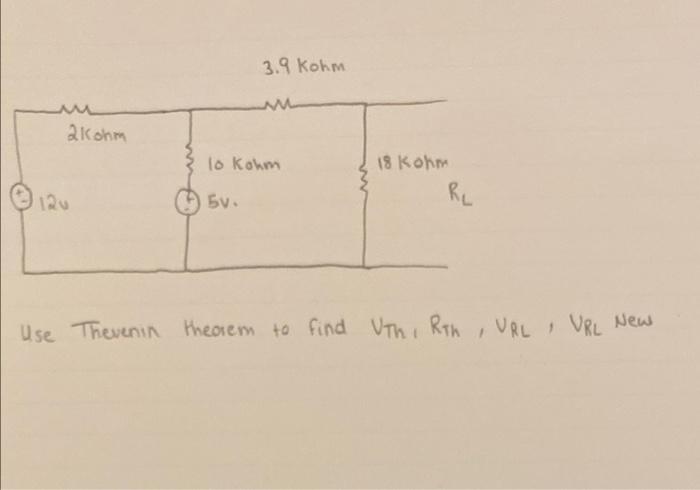 3.9 Kohm
2Kohm
10 Kohm
18 Kohm
12v
5v.
RL
Use Thevenin theorem to find VTh, RTh, VRL, VRL New